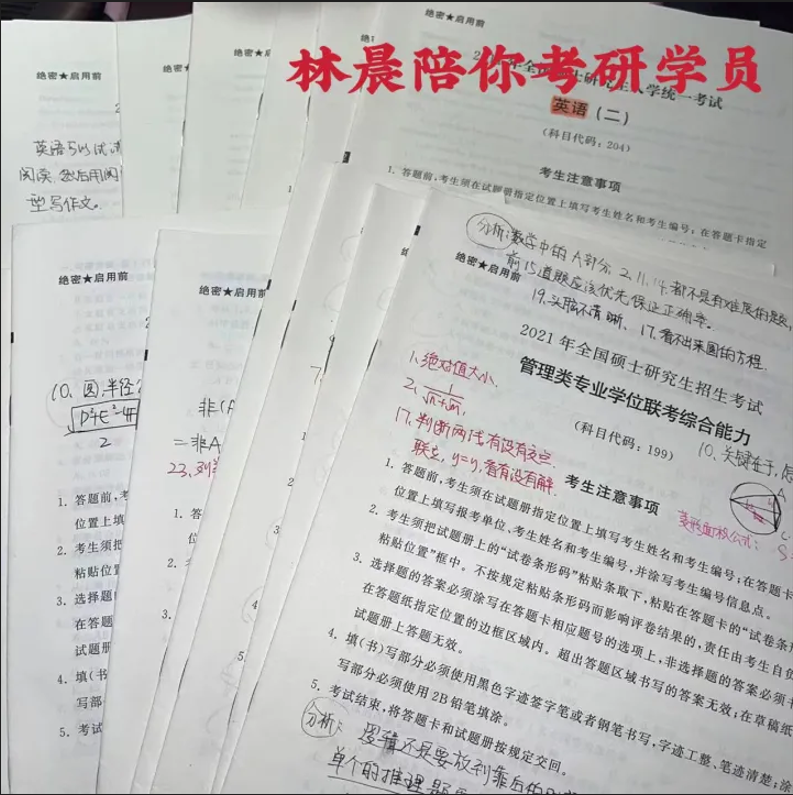 林晨陪你考研学员
绝密★启用前
绝密★
绝密★启用前
绝密★启用前
英语(二)
(科目代码:204)
考生注意事项
1. 答题前,考生须在试题册指定位置上填写考生姓名和考生编号;在答题卡指定
阅读,然后用
型写作文。
绝密★启用前
10、圆,半径
2
1. 答题前,考
位置上填
2. 考生须把
粘贴位置
3. 选择题
在答题
试题册
4. 填(书
写部
5. 考试
绝密★启用前
非(A
=非A
23、
分析:数学中的A部分,2、11、14,都不是有难度的题,
前15道题应该优先保证正确率。
19、头脑不清晰、17、看不出来圆的方程.
绝密★启用前
2021年全国硕士研究生招生考试
管理类专业学位联考综合能力
(科目代码:199)
1、绝对值大小.
2、
17、判断两线有没有交点
联立,y=y,看有没有解.
10、关键在于,
菱形面积公式:
考生注意事项
1. 答题前,考生须在试题册指定位置上填写考生姓名和考生编号;在答题卡
位置上填写报考单位、考生姓名和考生编号,并涂写考生编号信息点。
2. 考生须把试题册上的“试卷条形码”粘贴条取下,粘贴在答题卡的“试卷条形
粘贴位置”框中。不按规定粘贴条形码而影响评卷结果的,责任由考生自负
3. 选择题的答案必须涂写在答题卡相应题号的选项上,非选择题的答案必须书
在答题纸指定位置的边框区域内。超出答题区域书写的答案无效;在草稿纸
试题册上答题无效。
4. 填(书)写部分必须使用黑色字迹签字笔或者钢笔书写,字迹工整、笔迹清楚;涂
写部分必须使用2B铅笔填涂。
5. 考试结束,将答题卡和试题册按规定交回。
分析:逻辑还是要放到靠后的
单个的推理题